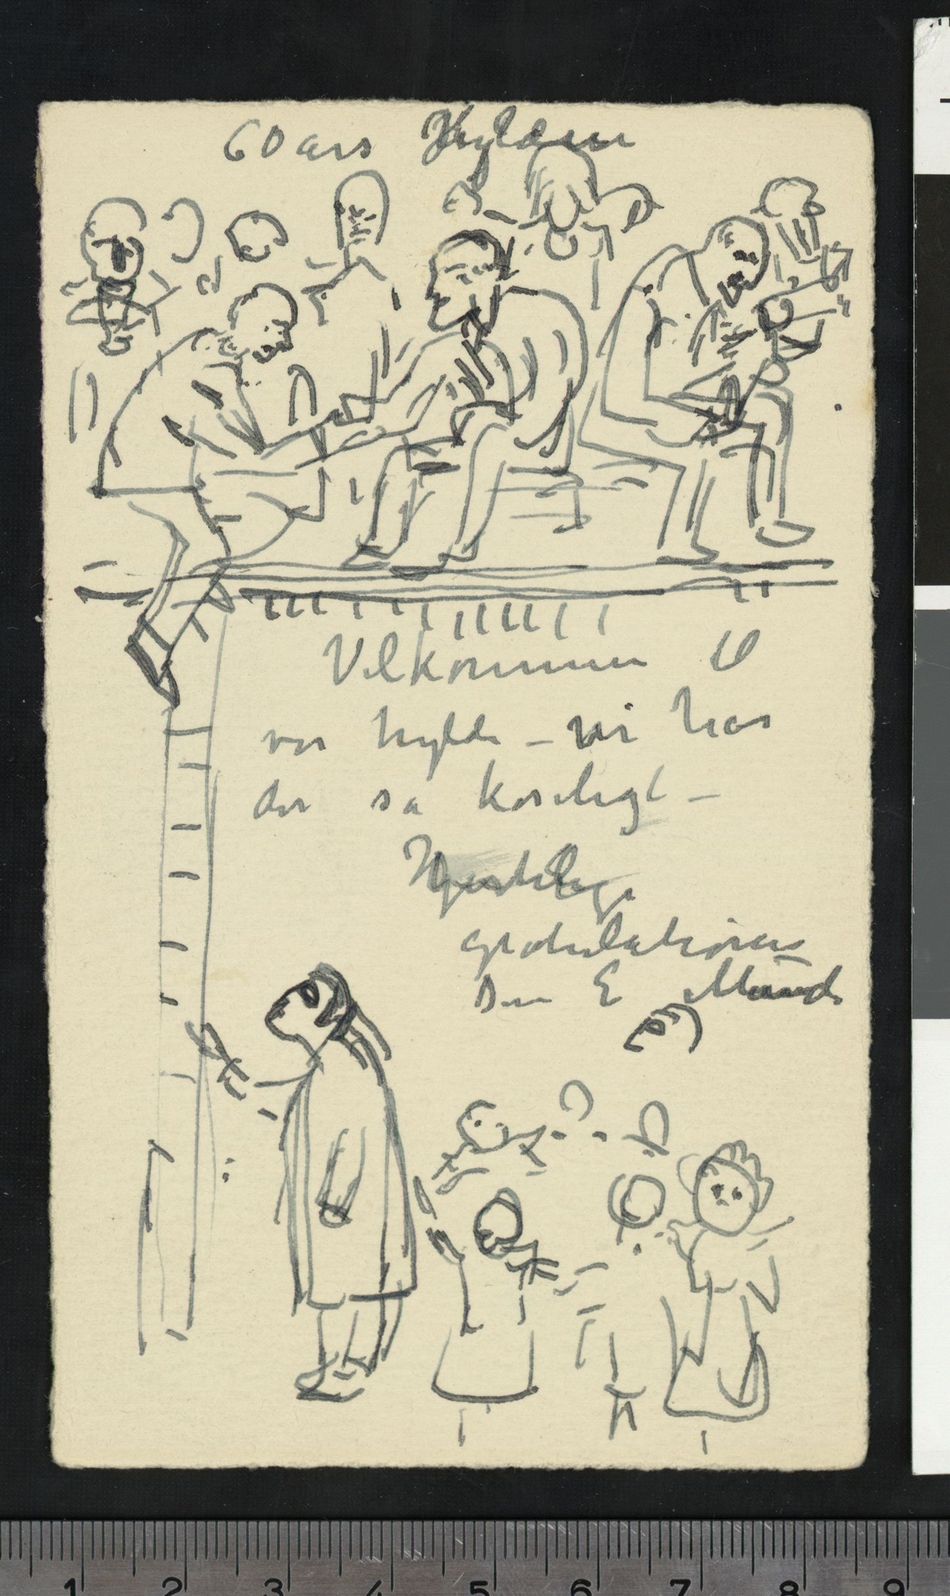 60 aars Hylden
Velkommen til
vor hylde – vi har
det så koseligt –
Hjertelige
gratulationer
Din E Munch
1 2 3 4 5 6 7 8 9